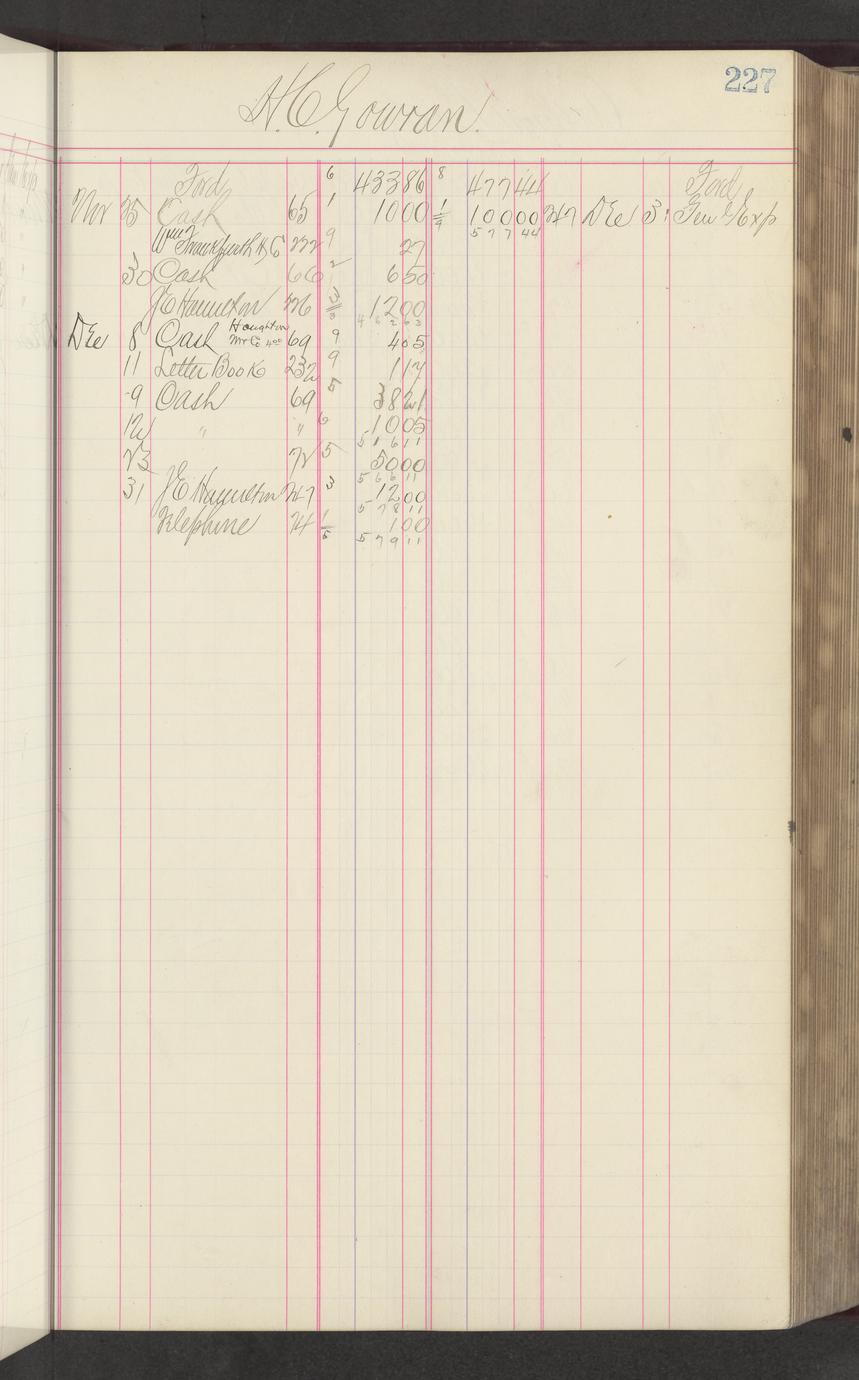 227
H.C. Gowran.
Ford 6 433 86 8 477 44 Ford
Nov 25 Cash 65 1 10 00 1/9 100 00 247 Dec 31 Gen Exp
577 44
Wm Frankfurth H. Co 222 9 27
30 Cash 66 2 6 50
J E Hamilton 226 3/3 12 00
462 63
Dec 8 Cash Houghton Mr Co 400 69 9 4 05
11 Letter Book 232 9 1 17
9 Cash 69 5 38 21
12 " " 6 10 05
516 11
23 72 5 50 00
566 11
31 J E Hamilton 247 3 12 00
578 11
Telephone 74 1/5 1 00
579 11